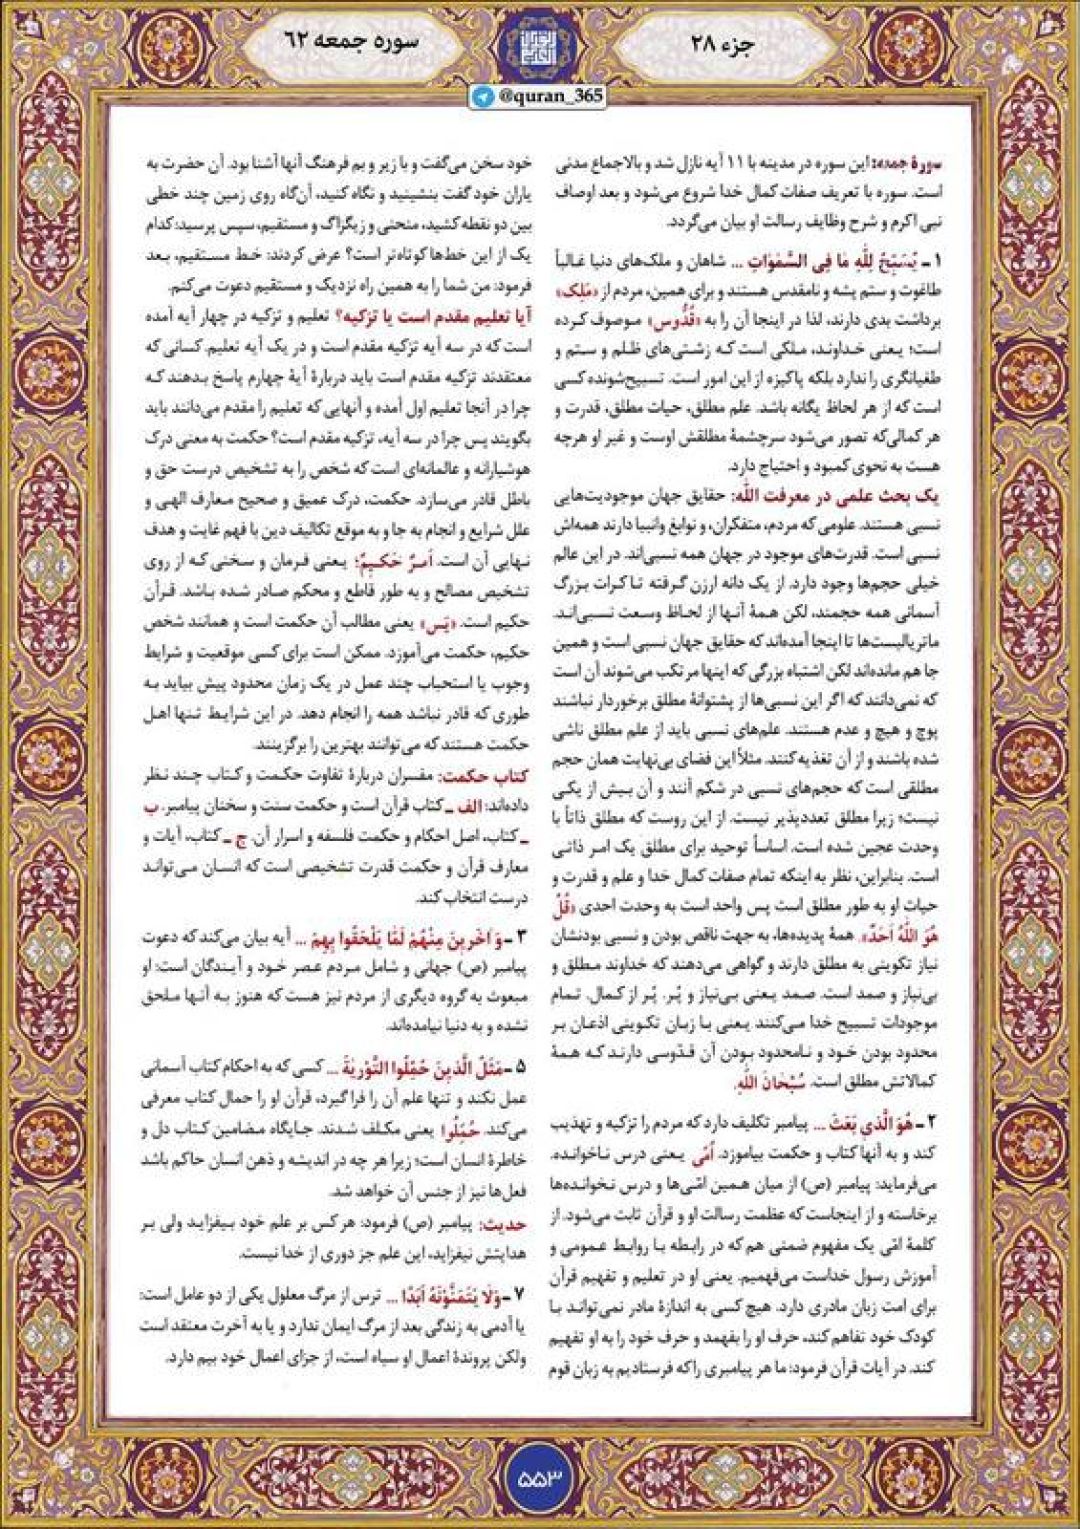 جزء ۲۸
سوره جمعه ۶۲
@quran_365
سورهٔ جمعه: این سوره در مدینه با ۱۱ آیه نازل شد و بالاجماع مدنی
است. سوره با تعریف صفات کمال خدا شروع می‌شود و بعد اوصاف
نبی اکرم و شرح وظایف رسالت او بیان می‌گردد.
۱ - یُسَبِّحُ لِلّٰهِ مَا فِی السَّمٰوَاتِ ... شاهان و ملک‌های دنیا غالباً
طاغوت و ستم پشه و نامقدس هستند و برای همین، مردم از «مَلِک»
برداشت بدی دارند، لذا در اینجا آن را به «قُدُّوس» موصوف کرده
است؛ یعنی خداوند، ملکی است که زشتی‌های ظلم و ستم و
طغیانگری را ندارد بلکه پاکیزه از این امور است. تسبیح‌شونده کسی
است که از هر لحاظ یگانه باشد. علم مطلق، حیات مطلق، قدرت و
هر کمالی‌که تصور می‌شود سرچشمهٔ مطلقش اوست و غیر او هرچه
هست به نحوی کمبود و احتیاج دارد.
یک بحث علمی در معرفت الله: حقایق جهان موجودیت‌هایی
نسبی هستند. علومی که مردم، متفکران، و نوابغ وانبیا دارند همه‌اش
نسبی است. قدرت‌های موجود در جهان همه نسبی‌اند. در این عالم
خیلی حجم‌ها وجود دارد. از یک دانه ارزن گرفته تا کرات بزرگ
آسمانی همه حجمند، لکن همهٔ آنها از لحاظ وسعت نسبی‌اند.
ماتریالیست‌ها تا اینجا آمده‌اند که حقایق جهان نسبی است و همین
جا هم مانده‌اند لکن اشتباه بزرگی که اینها مرتکب می‌شوند آن است
که نمی‌دانند که اگر این نسبی‌ها از پشتوانهٔ مطلق برخوردار نباشند
پوچ و هیچ و عدم هستند. علم‌های نسبی باید از علم مطلق ناشی
شده باشند و از آن تغذیه کنند. مثلاً این فضای بی‌نهایت همان حجم
مطلقی است که حجم‌های نسبی در شکم آنند و آن بیش از یکی
نیست؛ زیرا مطلق تعددپذیر نیست. از این روست که مطلق ذاتاً با
وحدت عجین شده است. اساساً توحید برای مطلق یک امر ذاتی
است. بنابراین، نظر به اینکه تمام صفات کمال خدا و علم و قدرت و
حیات او به طور مطلق است پس واحد است به وحدت احدی «قُلْ
هُوَ اللّٰهُ اَحَدٌ». همهٔ پدیده‌ها، به جهت ناقص بودن و نسبی بودنشان
نیاز تکوینی به مطلق دارند و گواهی می‌دهند که خداوند مطلق و
بی‌نیاز و صمد است. صمد یعنی بی‌نیاز و پُر. پُر از کمال. تمام
موجودات تسبیح خدا می‌کنند یعنی با زبان تکوینی اذعان بر
محدود بودن خود و نامحدود بودن آن قدّوسی دارند که همهٔ
کمالاتش مطلق است. سُبْحَانَ اللّٰهِ.
۲ - هُوَ الَّذی بَعَثَ ... پیامبر تکلیف دارد که مردم را تزکیه و تهذیب
کند و به آنها کتاب و حکمت بیاموزد. اُمّی یعنی درس ناخوانده.
می‌فرماید: پیامبر (ص) از میان همین امّی‌ها و درس نخوانده‌ها
برخاسته و از اینجاست که عظمت رسالت او و قرآن ثابت می‌شود. از
کلمهٔ امّی یک مفهوم ضمنی هم که در رابطه با روابط عمومی و
آموزش رسول خداست می‌فهمیم. یعنی او در تعلیم و تفهیم قرآن
برای امت زبان مادری دارد. هیچ کسی به اندازهٔ مادر نمی‌تواند با
کودک خود تفاهم کند، حرف او را بفهمد و حرف خود را به او تفهیم
کند. در آیات قرآن فرمود: ما هر پیامبری را که فرستادیم به زبان قوم
خود سخن می‌گفت و با زیر و بم فرهنگ آنها آشنا بود. آن حضرت به
یاران خود گفت بنشینید و نگاه کنید، آن‌گاه روی زمین چند خطی
بین دو نقطه کشید، منحنی و زیگزاگ و مستقیم، سپس پرسید: کدام
یک از این خط‌ها کوتاه‌تر است؟ عرض کردند: خط مستقیم، بعد
فرمود: من شما را به همین راه نزدیک و مستقیم دعوت می‌کنم.
آیا تعلیم مقدم است یا تزکیه؟ تعلیم و تزکیه در چهار آیه آمده
است که در سه آیه تزکیه مقدم است و در یک آیه تعلیم. کسانی که
معتقدند تزکیه مقدم است باید دربارهٔ آیهٔ چهارم پاسخ بدهند که
چرا در آنجا تعلیم اول آمده و آنهایی که تعلیم را مقدم می‌دانند باید
بگویند پس چرا در سه آیه، تزکیه مقدم است؟ حکمت به معنی درک
هوشیارانه و عالمانه‌ای است که شخص را به تشخیص درست حق و
باطل قادر می‌سازد. حکمت، درک عمیق و صحیح معارف الهی و
علل شرایع و انجام به جا و به موقع تکالیف دین با فهم غایت و هدف
نهایی آن است. اَمرٌ حَکیمٌ؛ یعنی فرمان و سخنی که از روی
تشخیص مصالح و به طور قاطع و محکم صادر شده باشد. قرآن
حکیم است. «یٰس» یعنی مطالب آن حکمت است و همانند شخص
حکیم، حکمت می‌آموزد. ممکن است برای کسی موقعیت و شرایط
وجوب یا استحباب چند عمل در یک زمان محدود پیش بیاید به
طوری که قادر نباشد همه را انجام دهد. در این شرایط تنها اهل
حکمت هستند که می‌توانند بهترین را برگزینند.
کتاب حکمت: مفسران دربارهٔ تفاوت حکمت و کتاب چند نظر
داده‌اند: الف - کتاب قرآن است و حکمت سنت و سخنان پیامبر. ب
- کتاب، اصل احکام و حکمت فلسفه و اسرار آن. ج - کتاب، آیات و
معارف قرآن و حکمت قدرت تشخیصی است که انسان می‌تواند
درست انتخاب کند.
۳ - وَ آخَرینَ مِنْهُمْ لَمّٰا یَلْحَقُوا بِهِمْ ... آیه بیان می‌کند که دعوت
پیامبر (ص) جهانی و شامل مردم عصر خود و آیندگان است؛ او
مبعوث به گروه دیگری از مردم نیز هست که هنوز به آنها ملحق
نشده و به دنیا نیامده‌اند.
۵ - مَثَلُ الَّذینَ حُمِّلُوا التَّوْریٰةَ ... کسی که به احکام کتاب آسمانی
عمل نکند و تنها علم آن را فرا گیرد، قرآن او را حمال کتاب معرفی
می‌کند. حُمِّلُوا یعنی مکلف شدند. جایگاه مضامین کتاب دل و
خاطرهٔ انسان است؛ زیرا هر چه در اندیشه و ذهن انسان حاکم باشد
فعل‌ها نیز از جنس آن خواهد شد.
حدیث: پیامبر (ص) فرمود: هر کس بر علم خود بیفزاید ولی بر
هدایتش نیفزاید، این علم جز دوری از خدا نیست.
۷ - وَلٰا یَتَمَنَّوْنَهُ اَبَدًا ... ترس از مرگ معلول یکی از دو عامل است:
یا آدمی به زندگی بعد از مرگ ایمان ندارد و یا به آخرت معتقد است
ولکن پروندهٔ اعمال او سیاه است، از جزای اعمال خود بیم دارد.
۵۵۳